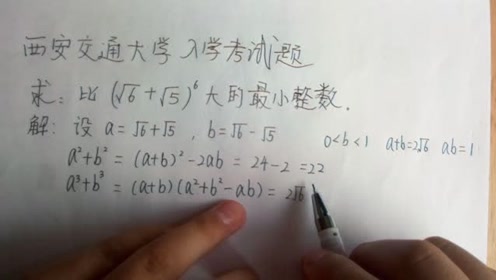 西安交通大学 入学考试题
求：比 (√6+√5)⁶ 大的最小整数.
解：设 a=√6+√5 , b=√6-√5 0<b<1 a+b=2√6 ab=1
a²+b² = (a+b)²-2ab = 24-2 =22
a³+b³ = (a+b)(a²+b²-ab) = 2√6